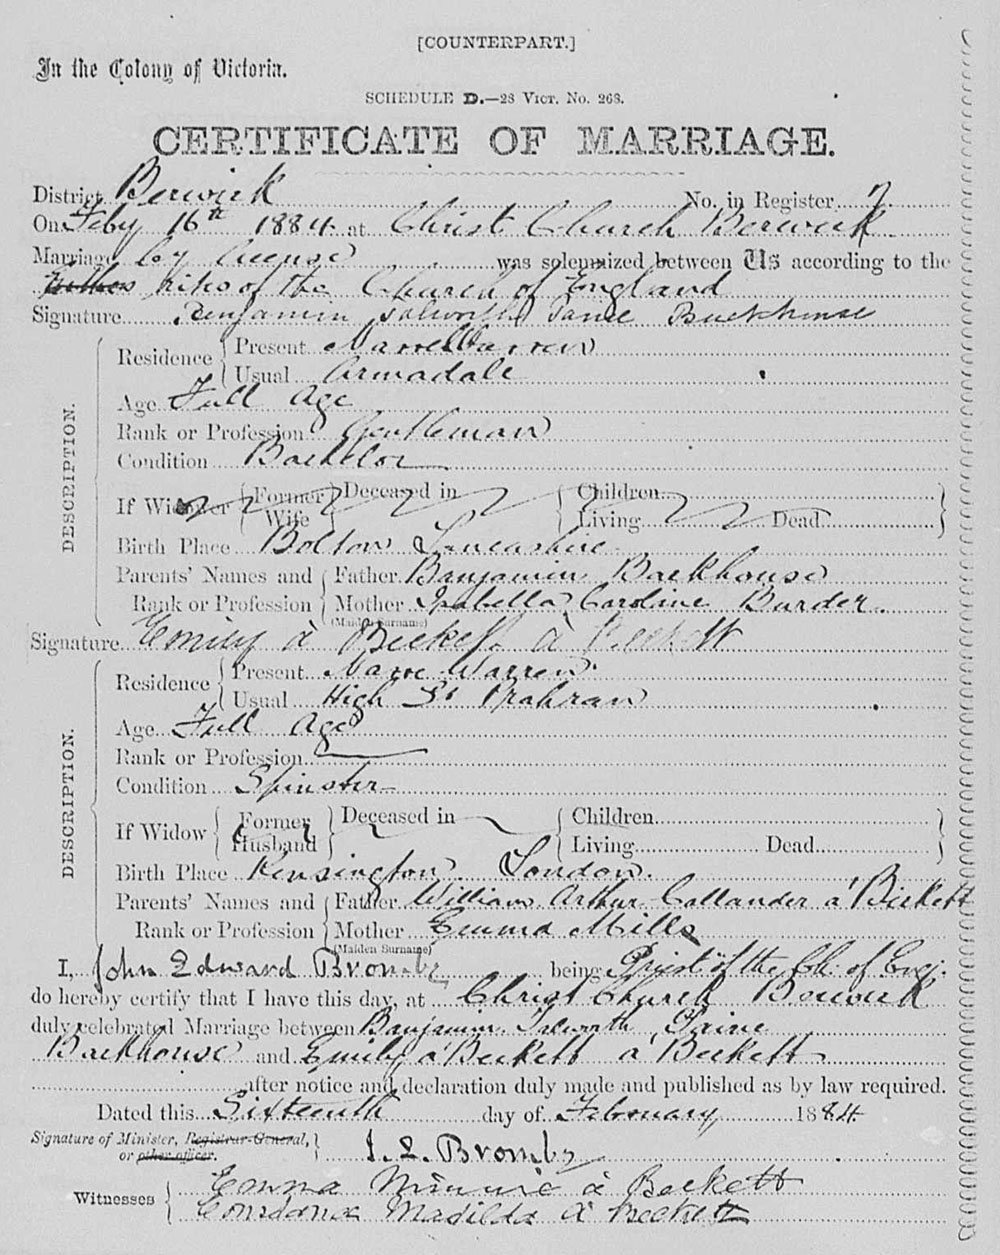 [COUNTERPART.]
In the Colony of Victoria.
SCHEDULE D.—28 VICT. No. 268.
CERTIFICATE OF MARRIAGE.
District Berwick No. in Register 7
On Feby 16th 1884 at Christ Church Berwick
Marriage by license was solemnized between Us according to the
Rites of the Church of England
Signature Benjamin Backhouse
Residence Present Narre Warren
Usual Armadale
Age Full Age
Rank or Profession Gentleman
Condition Bachelor
If Widower Former Wife Deceased in Children Living Dead
Birth Place Bolton Lancashire
Parents' Names and Rank or Profession Father Benjamin Backhouse
Mother Isabella Caroline Burder
(Maiden Surname)
Signature Emily à Beckett à Beckett
DESCRIPTION.
Residence Present Narre Warren
Usual High St Prahran
Age Full Age
Rank or Profession
Condition Spinster
If Widow Former Husband Deceased in Children Living Dead
Birth Place Kensington London.
Parents' Names and Rank or Profession Father William Arthur Callander à Beckett
Mother Emma Mills
(Maiden Surname)
DESCRIPTION.
I, John Edward Bromby being Priest of the Ch. of Eng.
do hereby certify that I have this day, at Christ Church Berwick
duly celebrated Marriage between Benjamin Paine
Backhouse and Emily à Beckett à Beckett
after notice and declaration duly made and published as by law required.
Dated this Sixteenth day of February 1884
Signature of Minister, Registrar-General, or other officer. J. E. Bromby
Witnesses Emma Minnie à Beckett
Constance Matilda à Beckett